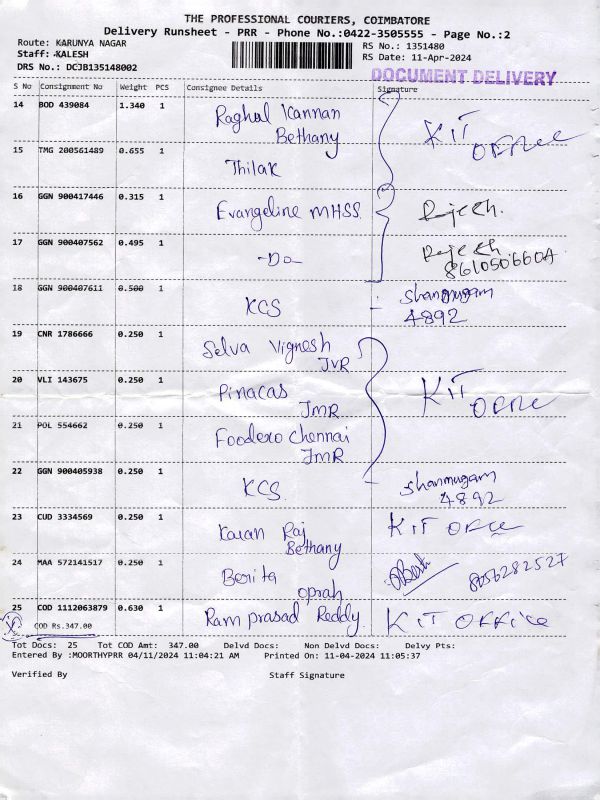 THE PROFESSIONAL COURIERS, COIMBATORE
Delivery Runsheet - PRR - Phone No.:0422-3505555 - Page No.:2
Route: KARUNYA NAGAR
Staff: KALESH
DRS No.: DCJB135148002
RS No.: 1351480
RS Date: 11-Apr-2024
DOCUMENT DELIVERY
S No Consignment No Weight PCS Consignee Details Signature
14 BOD 439084 1.340 1 Raghul Kannan
Bethany
KIT
OFFICE
15 TMG 200561489 0.655 1 Thilak
16 GGN 900417446 0.315 1 Evangeline MHSS. Rajesh.
17 GGN 900407562 0.495 1 -Do- Rajesh
18 GGN 900407611 0.500 1 KCS Shanmugam
4892
19 CNR 1786666 0.250 1 Selva Vignesh
JVR
20 VLI 143675 0.250 1 Pinacas
JMR
KIT
OFFICE
21 POL 554662 0.250 1 Foodexo Chennai
JMR
22 GGN 900405938 0.250 1 KCS. Shanmugam
4892
23 CUD 3334569 0.250 1 Karan Raj
Bethany
KIT OFFICE
24 MAA 572141517 0.250 1 Benita
oprah
8056282527
25 COD 1112063879 0.630 1 Ram prasad Reddy. KIT OFFICE
COD Rs.347.00
Tot Docs: 25 Tot COD Amt: 347.00 Delvd Docs: Non Delvd Docs: Delvy Pts:
Entered By :MOORTHYPRR 04/11/2024 11:04:21 AM Printed On: 11-04-2024 11:05:37
Verified By Staff Signature